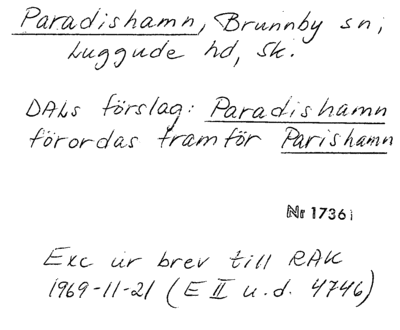 Paradishamn, Brunnby sn,
Luggude hd, Sk.
DALs förslag: Paradishamn
förordas framför Parishamn
Nr 1736
Exc ur brev till RAK
1969-11-21 (E II u.d. 4746)